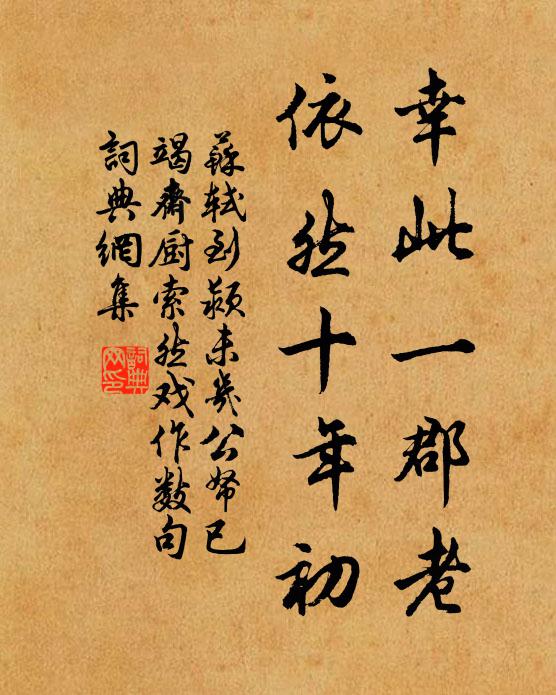 幸此一郡老
依然十年初
蘇軾到颍未幾公帑已
竭齋厨索然戏作數句
詞典網集
詞典網印